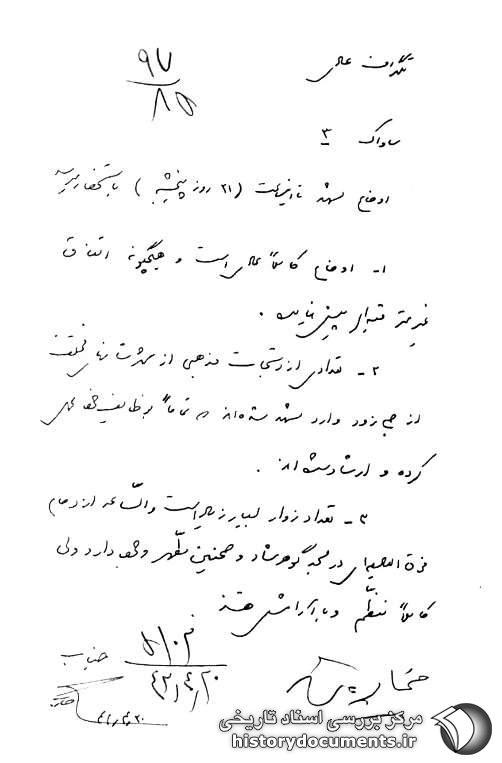 تلگراف عادی
۹۷
۸۵
ساواک ۳
اوضاع مشهد تا این ساعت (۲۱ روز پنجشنبه) باستحضار میرسد
۱- اوضاع کاملاً عادی است و هیچگونه اتفاق
غیرمترقبه‌ای پیش نیامده.
۲- تعدادی از دستجات مذهبی از شهرستانهای مختلف
از صبح زود وارد مشهد شده‌اند که تماماً بوظایف خود عمل
کرده و
۳- تعداد زوار بسیار زیاد است و الساعه ازدحام
فوق‌العاده‌ای در مسجد گوهرشاد و همچنین وجود دارد ولی
کاملاً منظم و با آرامش هستند
۴۲/۴/۲۰
مرکز بررسی اسناد تاریخی
historydocuments.ir